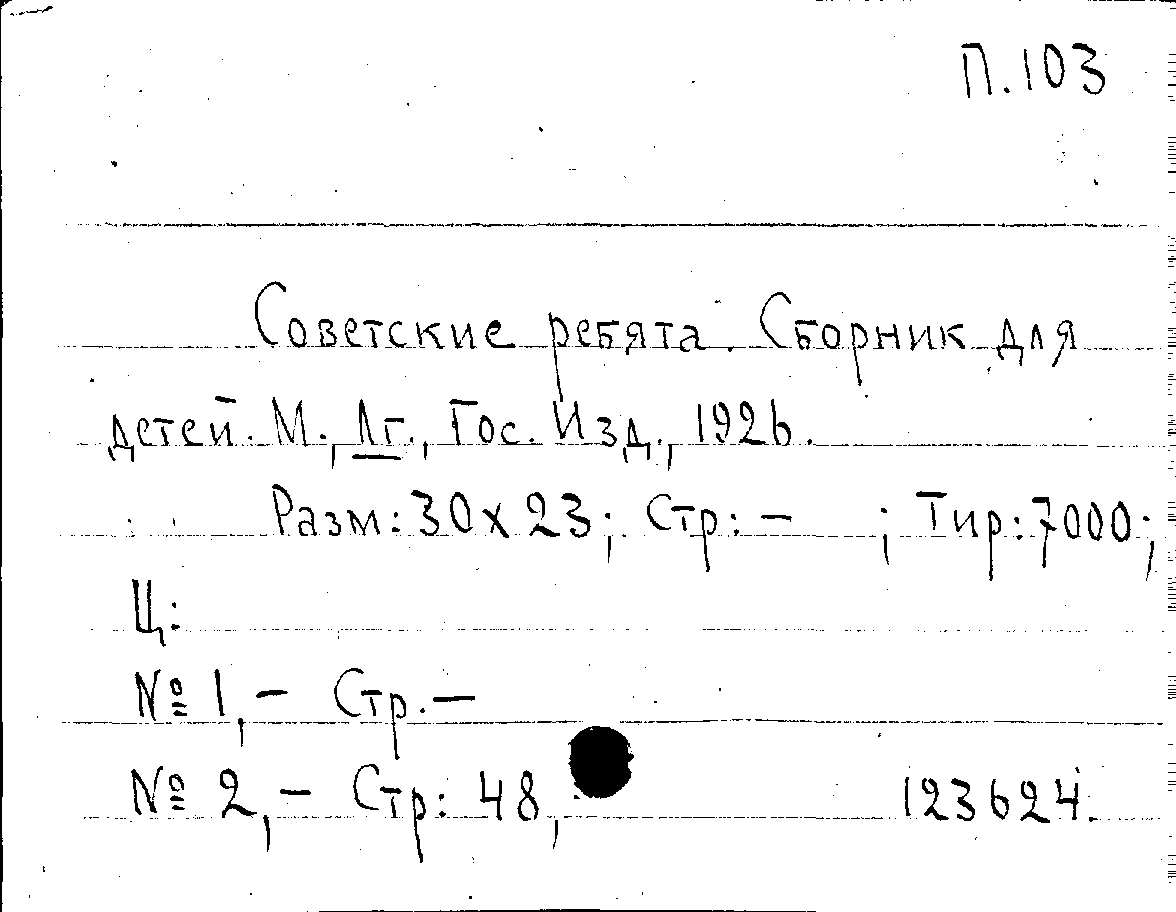 П.103
Советские ребята. Сборник для
детей. М., Лг., Гос. Изд., 1926.
Разм: 30 x 23; Стр: – ; Тир: 7000;
Ц:
№ 1, – Стр. –
№ 2, – Стр: 48, 123624.